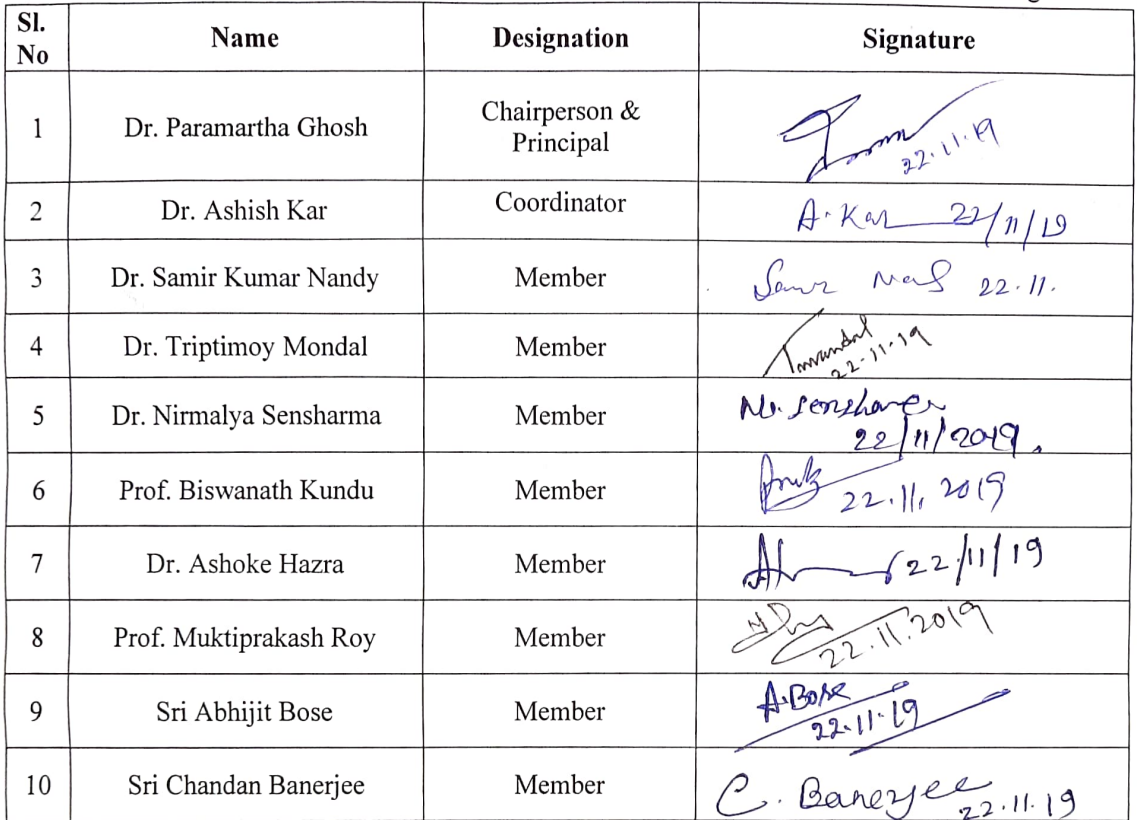 Sl. No Name Designation Signature
1 Dr. Paramartha Ghosh Chairperson & Principal 22.11.19
2 Dr. Ashish Kar Coordinator A. Kar 22/11/19
3 Dr. Samir Kumar Nandy Member 22.11.
4 Dr. Triptimoy Mondal Member 22.11.19
5 Dr. Nirmalya Sensharma Member 22/11/2019.
6 Prof. Biswanath Kundu Member 22.11.2019
7 Dr. Ashoke Hazra Member 22/11/19
8 Prof. Muktiprakash Roy Member 22.11.2019
9 Sri Abhijit Bose Member A. Bose 22.11.19
10 Sri Chandan Banerjee Member C. Banerjee 22.11.19